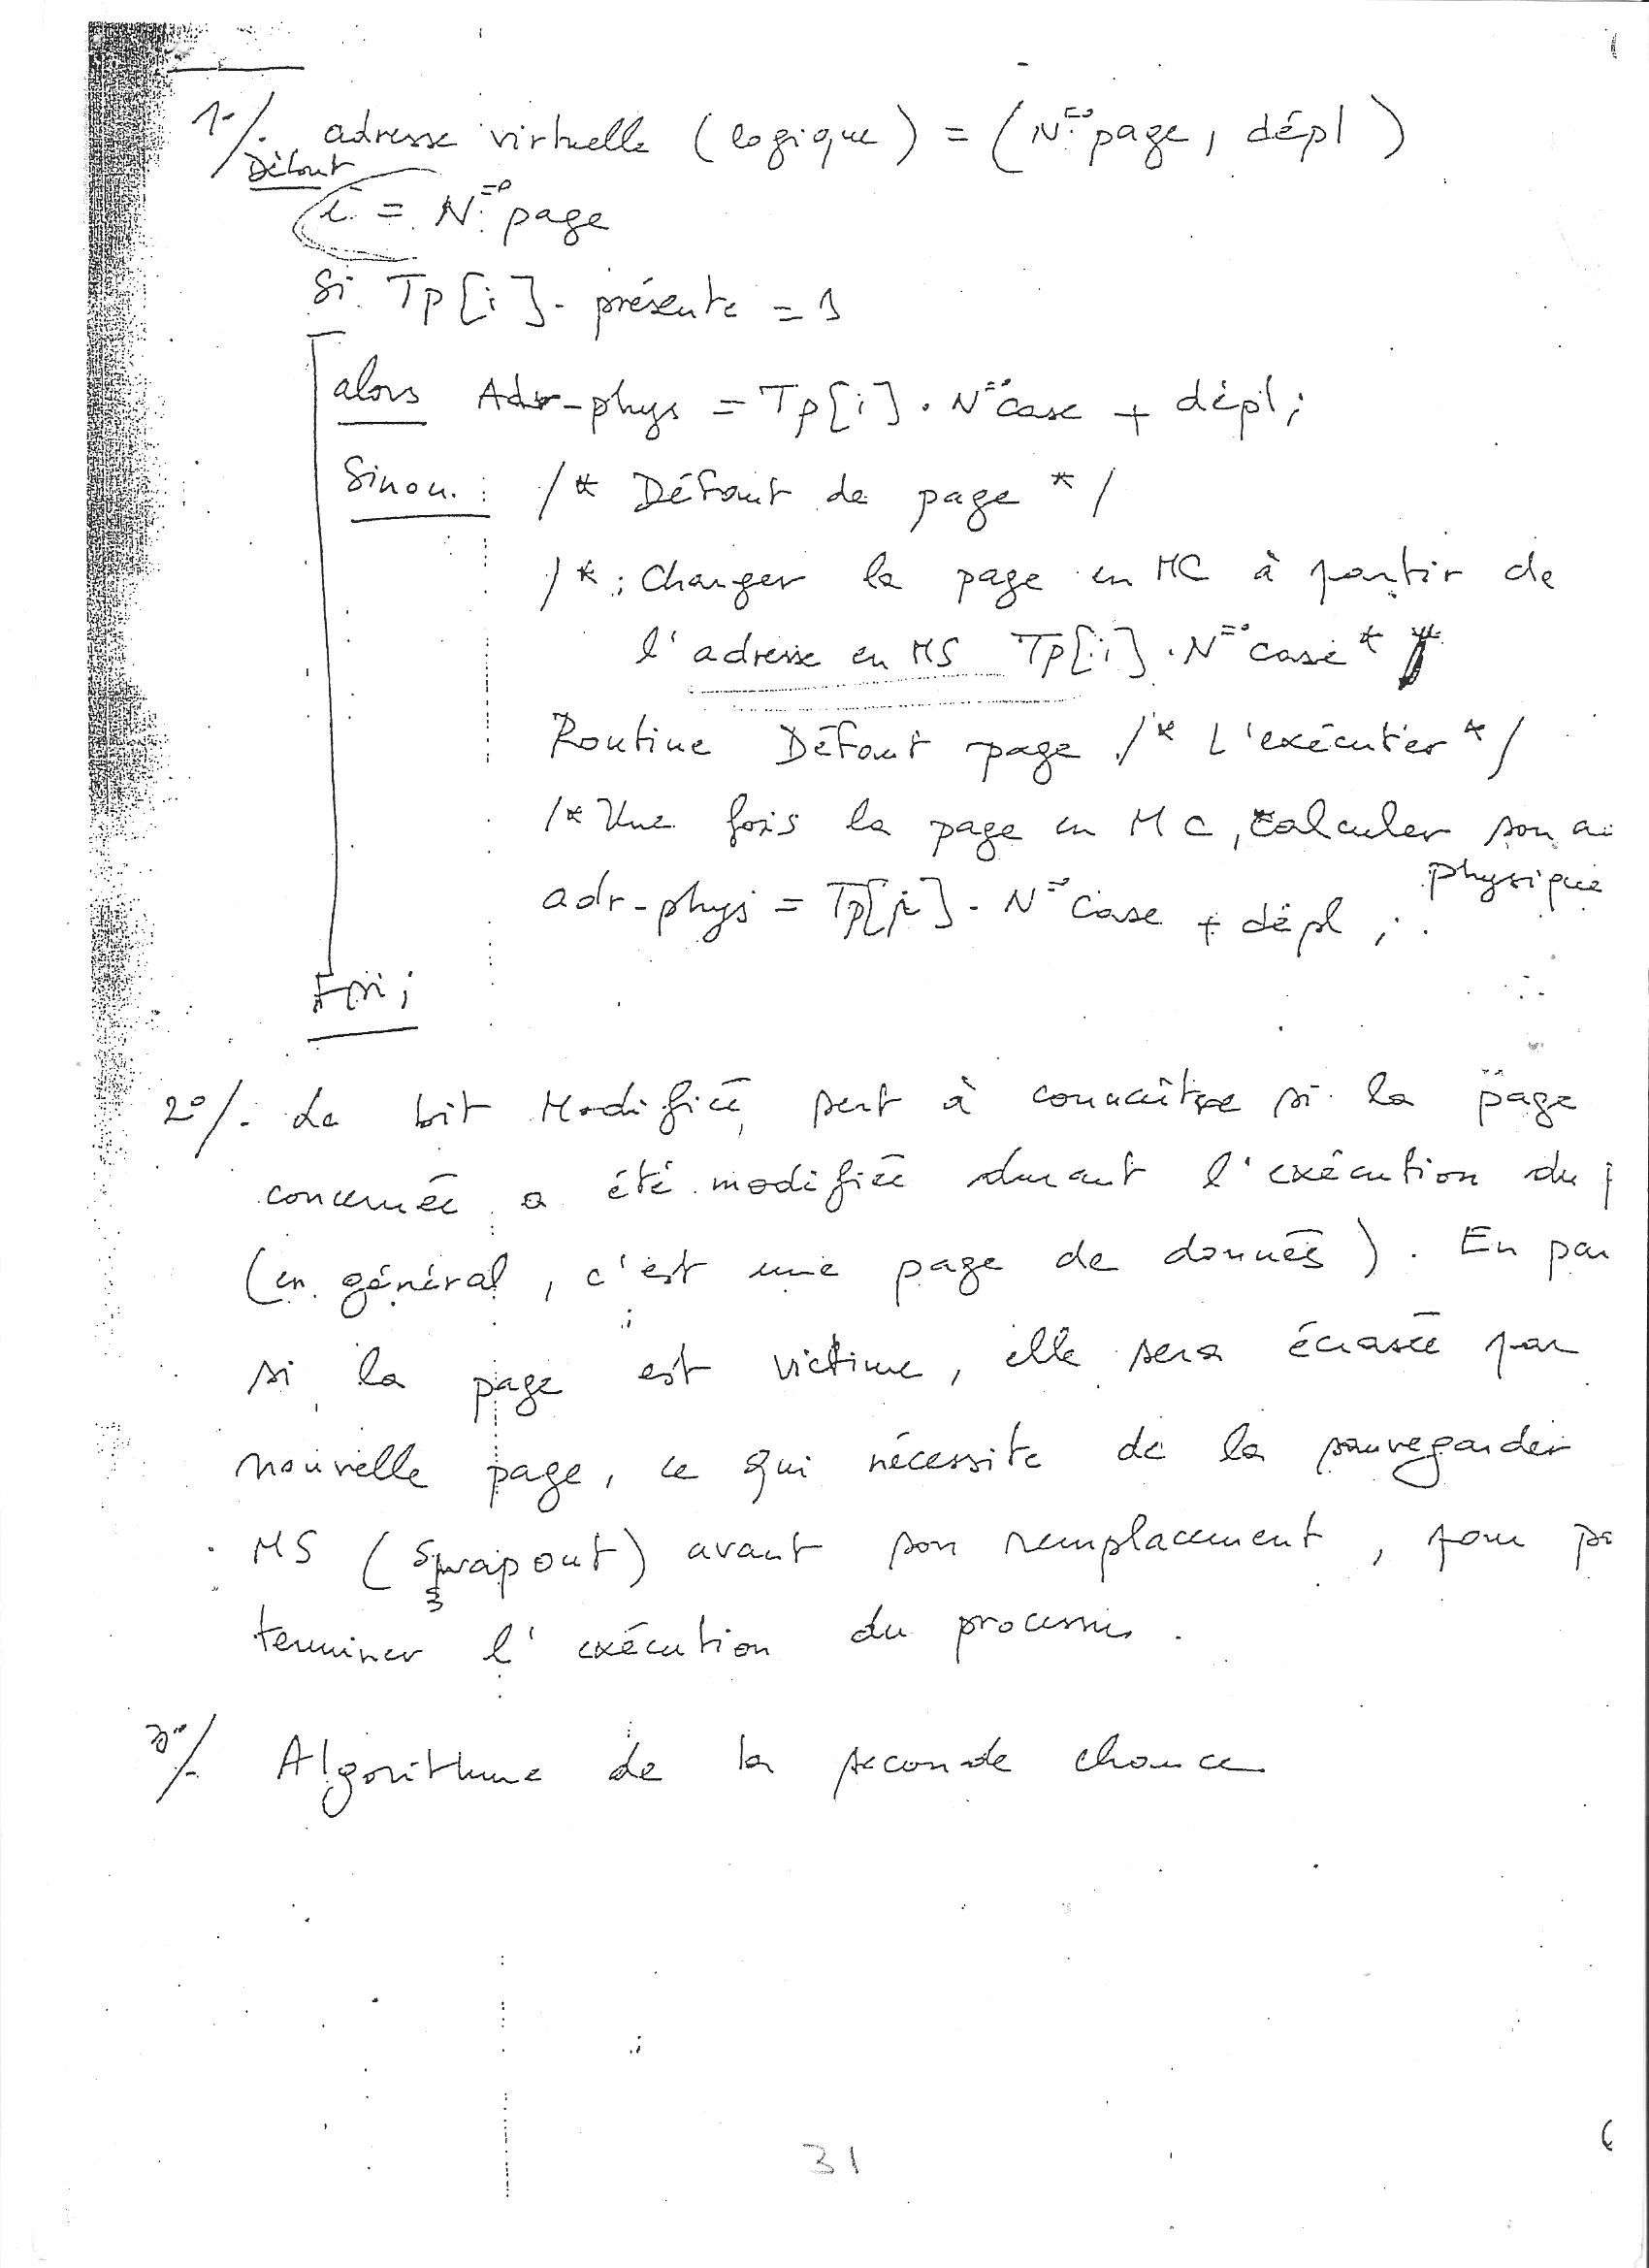 1°/. adresse virtuelle (logique) = (N° page, dépl)
Début
i = N° page
Si Tp[i]. présente = 1
alors Adr-phys = Tp[i]. N° case + dépl;
Sinon : /* Défaut de page */
/* Charger la page en MC à partir de
l'adresse en MS Tp[i]. N° case */
Routine Défaut page /* L'exécuter */
/* Une fois la page en MC, calculer son
physique
adr-phys = Tp[i]. N° case + dépl ;
Fsi ;
2°/. Le bit Modifiée, sert à connaître si la page
concernée a été modifiée durant l'exécution du
(en général, c'est une page de données). En
si la page est victime, elle sera écrasée par
nouvelle page, ce qui nécessite de la sauvegarder
MS (Swap out) avant son remplacement, pour
terminer l'exécution du processus.
3°/. Algorithme de la seconde chance
31